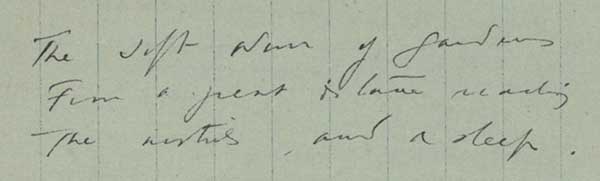 The soft odour of gardens
From a great distance reaching
The nostrils, and asleep.